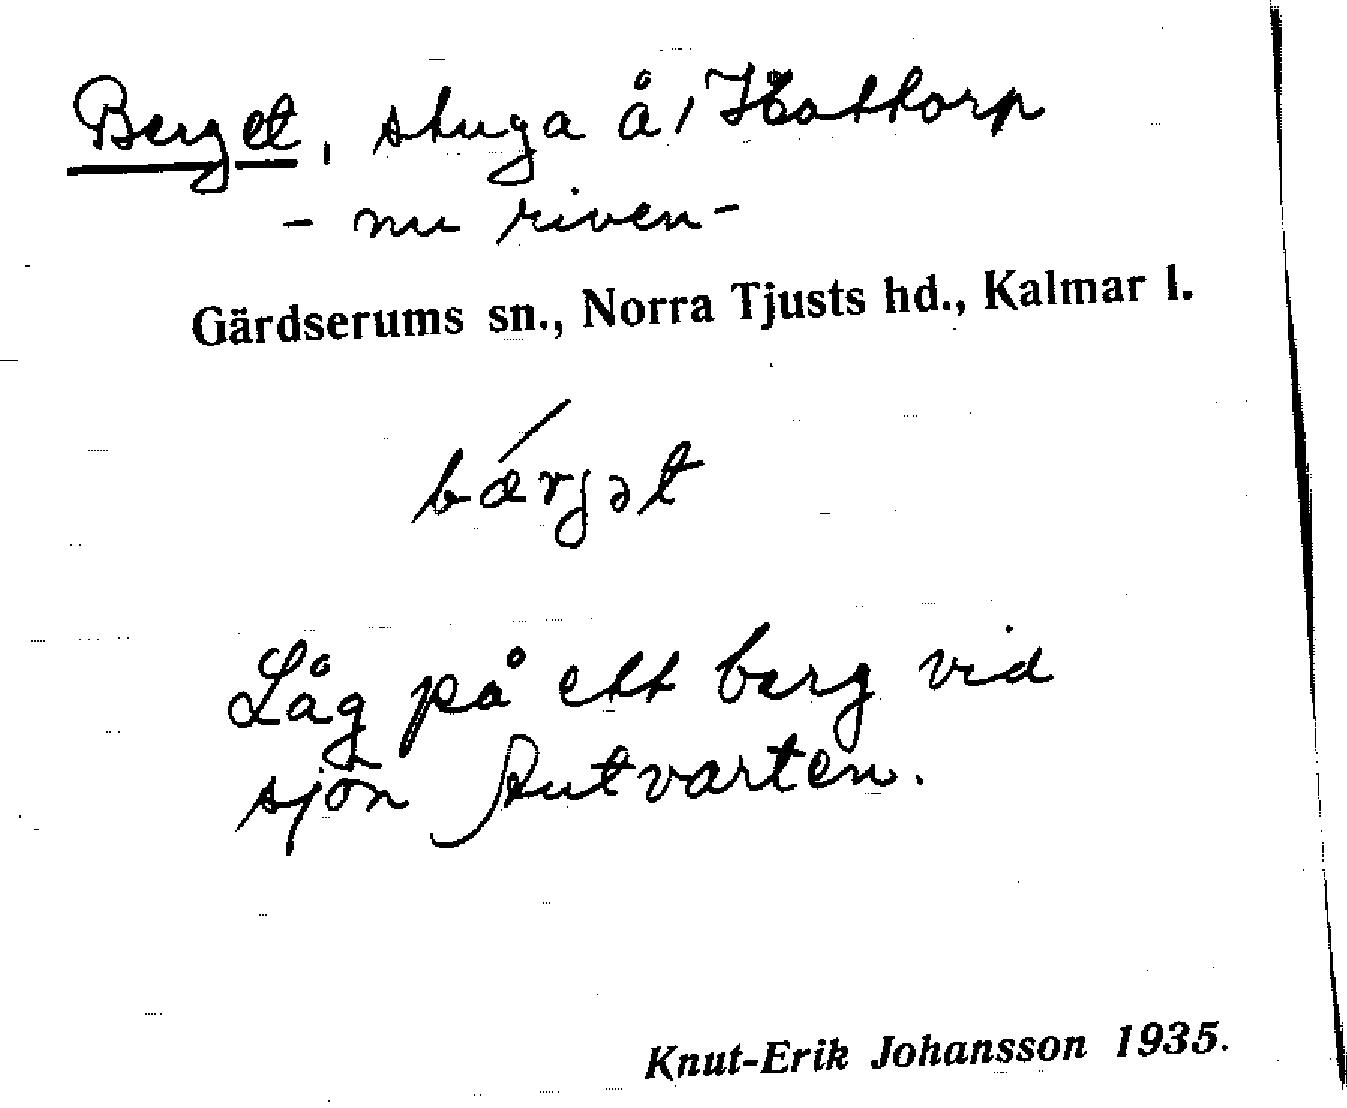 Berget, stuga å, Hattorp
- nu riven -
Gärdserums sn., Norra Tjusts hd., Kalmar l.
bǽrjət
Låg på ett berg vid
sjön Åutvarten.
Knut-Erik Johansson 1935.